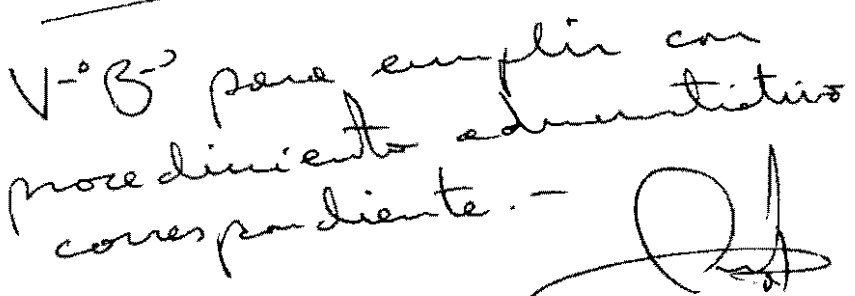 V-°B-° para cumplir con
procedimiento administrativo
correspondiente.-